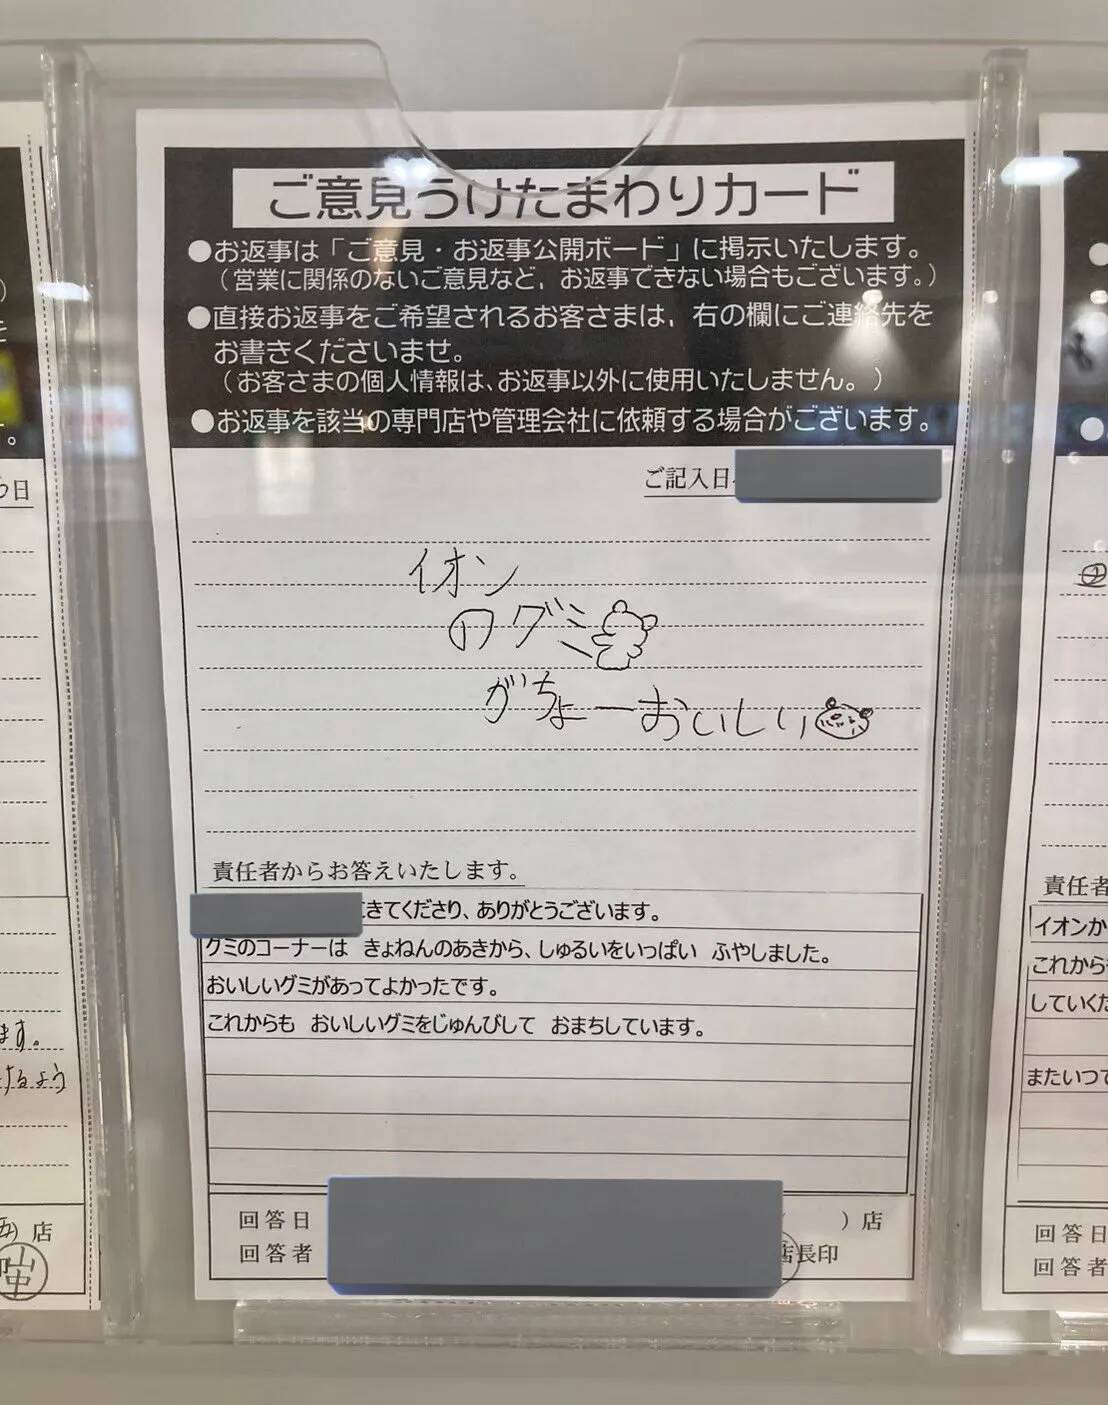 ご意見うけたまわりカード
●お返事は「ご意見・お返事公開ボード」に掲示いたします。
(営業に関係のないご意見など、お返事できない場合もございます。)
●直接お返事をご希望されるお客さまは、右の欄にご連絡先を
お書きくださいませ。
(お客さまの個人情報は、お返事以外に使用いたしません。)
●お返事を該当の専門店や管理会社に依頼する場合がございます。
ご記入日
イオン
のグミ
がちょーおいしい
責任者からお答えいたします。
きてくださり、ありがとうございます。
グミのコーナーは きょねんのあきから、しゅるいをいっぱい ふやしました。
おいしいグミがあってよかったです。
これからも おいしいグミをじゅんびして おまちしています。
回答日 )店
回答者 店長印
日
。
ます。
するよう
店
責任者
イオンか
これから
していくた
またいつで
回答日
回答者